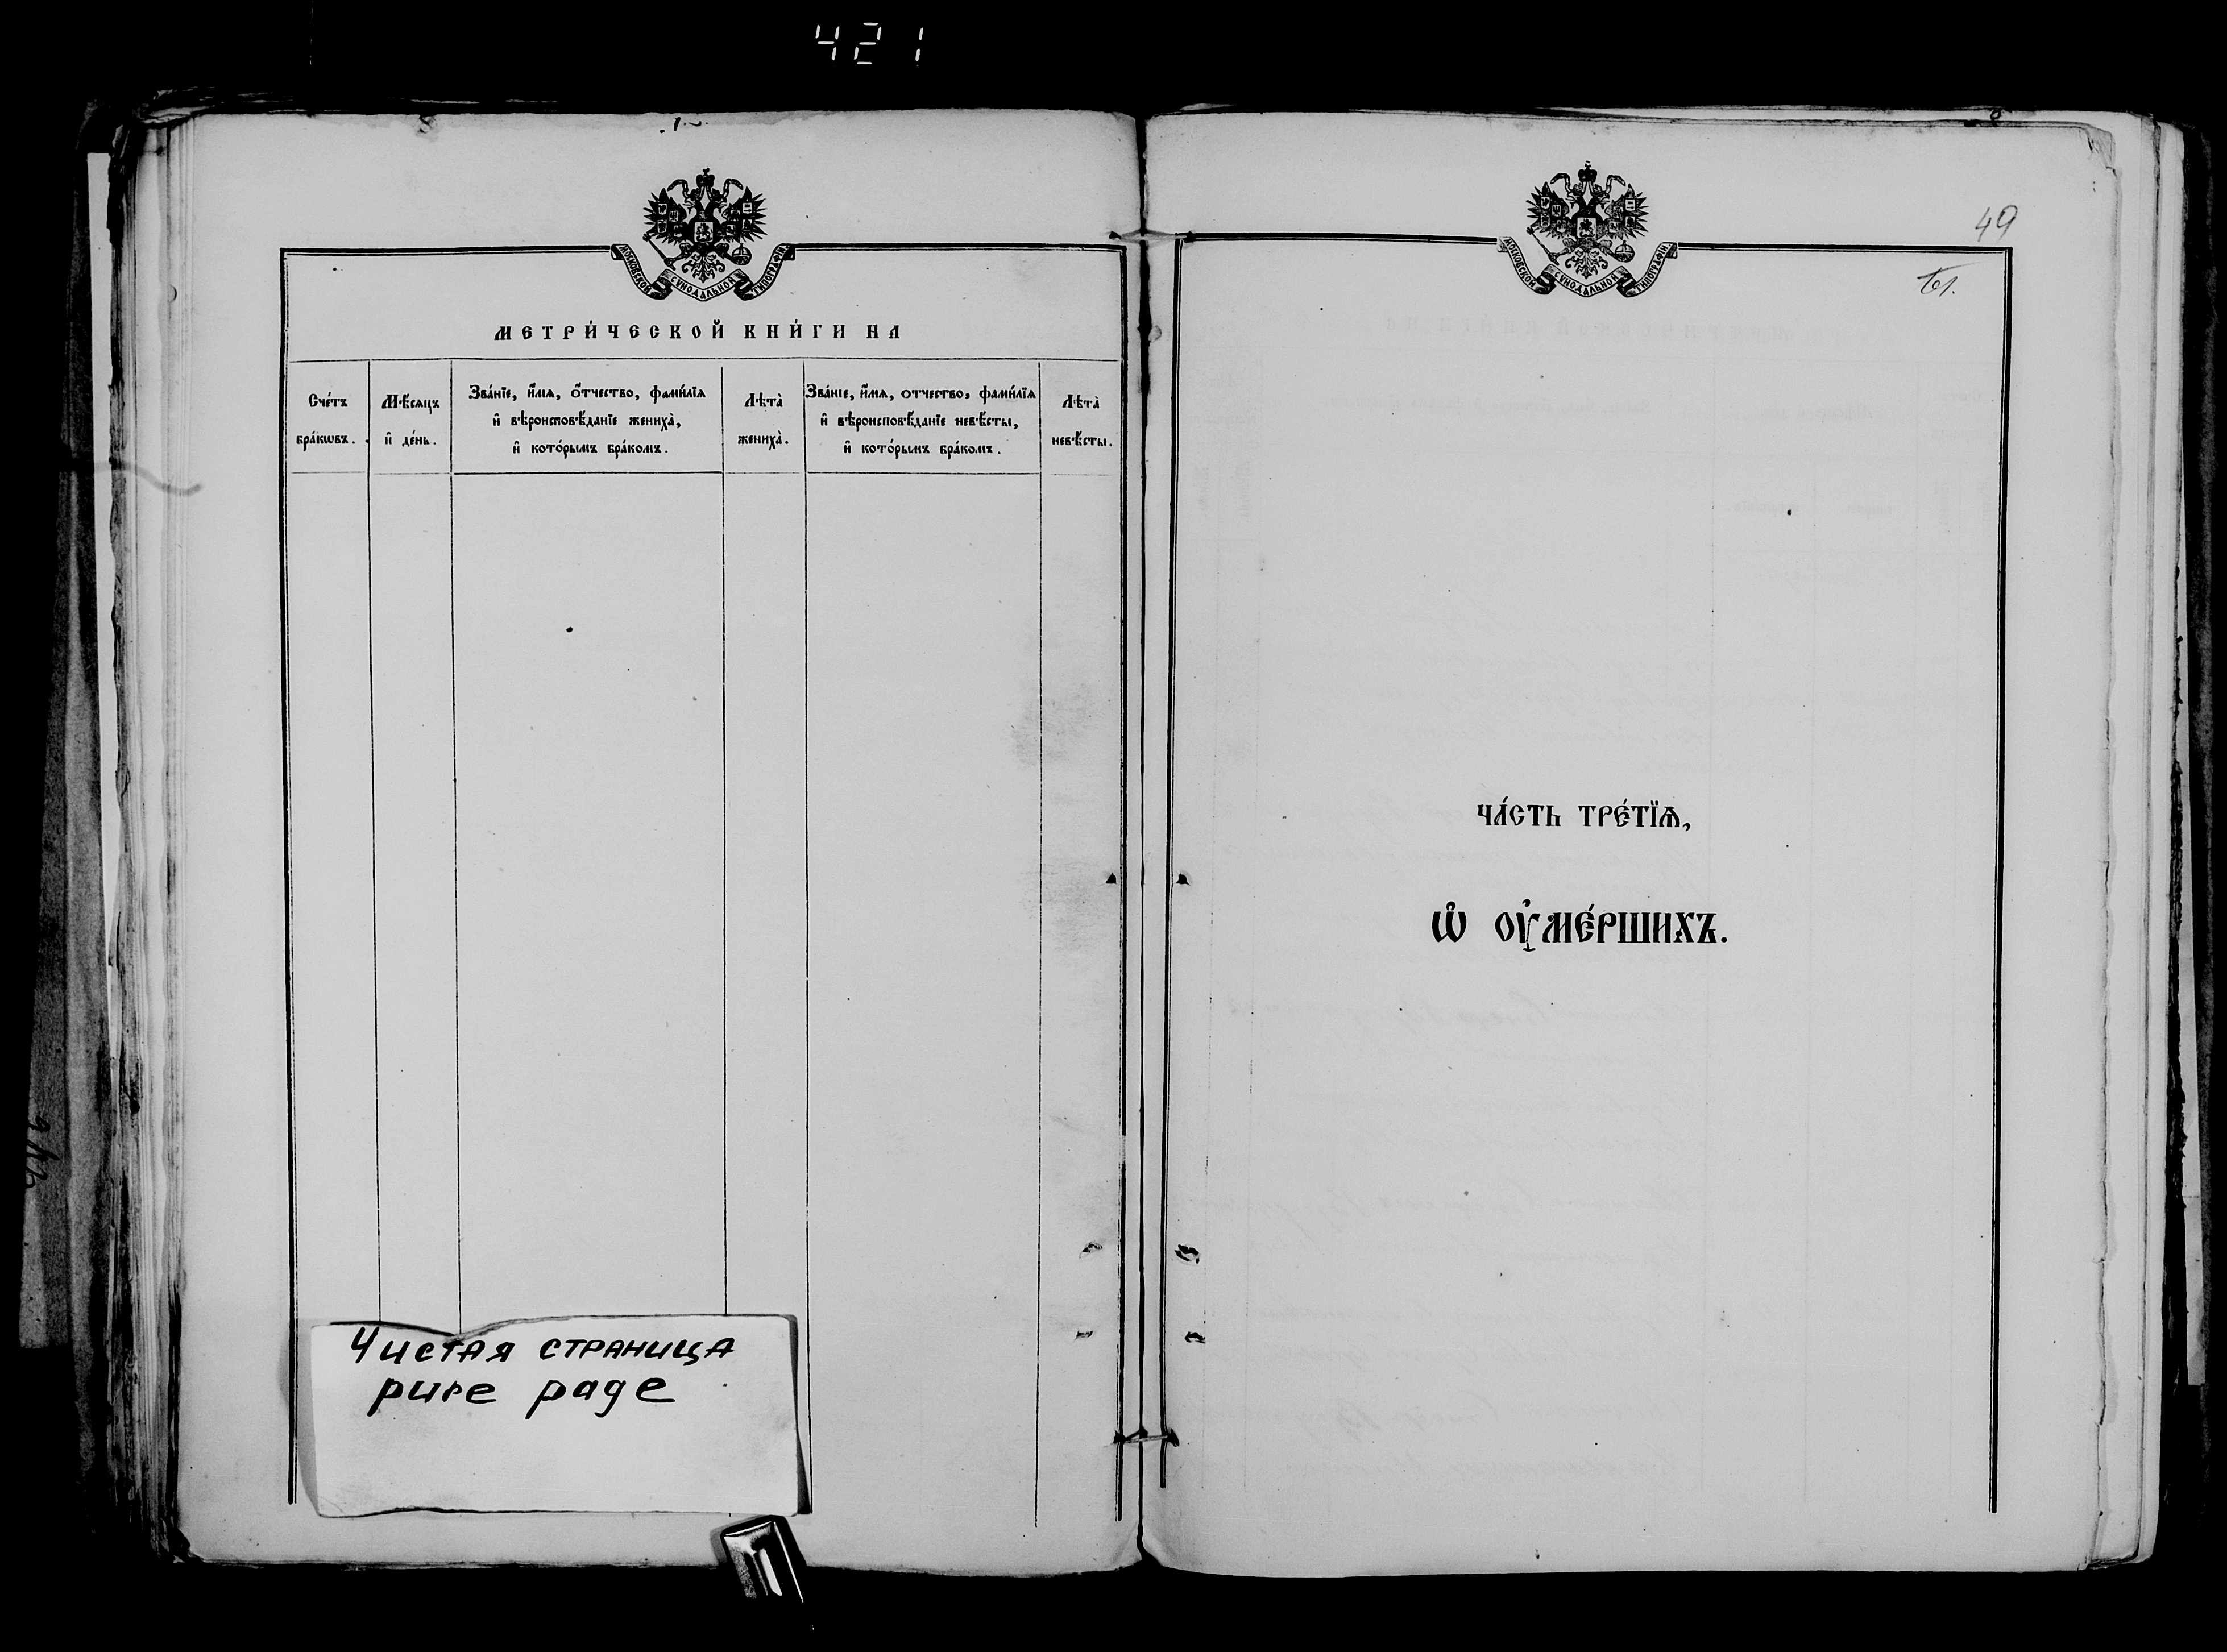 421
МОСКОВСКОЙ СѴНОДАЛЬНОЙ ТИПОГРАФІИ
МЕТРИ́ЧЕСКОЙ КНИ́ГИ НА
Сче́тъ бра́кѡвъ.
Мѣ́сяцъ и҆ де́нь.
Зва́нїе, и҆́мя, о҆́тчество, фами́лїя
и҆ вѣроисповѣ́данїе жениха̀,
и҆ кото́рымъ бра́комъ.
Лѣта̀ жениха̀.
Зва́нїе, и҆́мя, отчество, фами́лїя
и҆ вѣроисповѣ́данїе невѣ́сты,
и҆ кото́рымъ бра́комъ.
Лѣта̀ невѣ́сты.
Чистая страница
pure page
МОСКОВСКОЙ СѴНОДАЛЬНОЙ ТИПОГРАФІИ
49
ЧА́СТЬ ТРЕ́ТЇѦ,
Ѡ҆ ОУ҆МЕ́РШИХЪ.